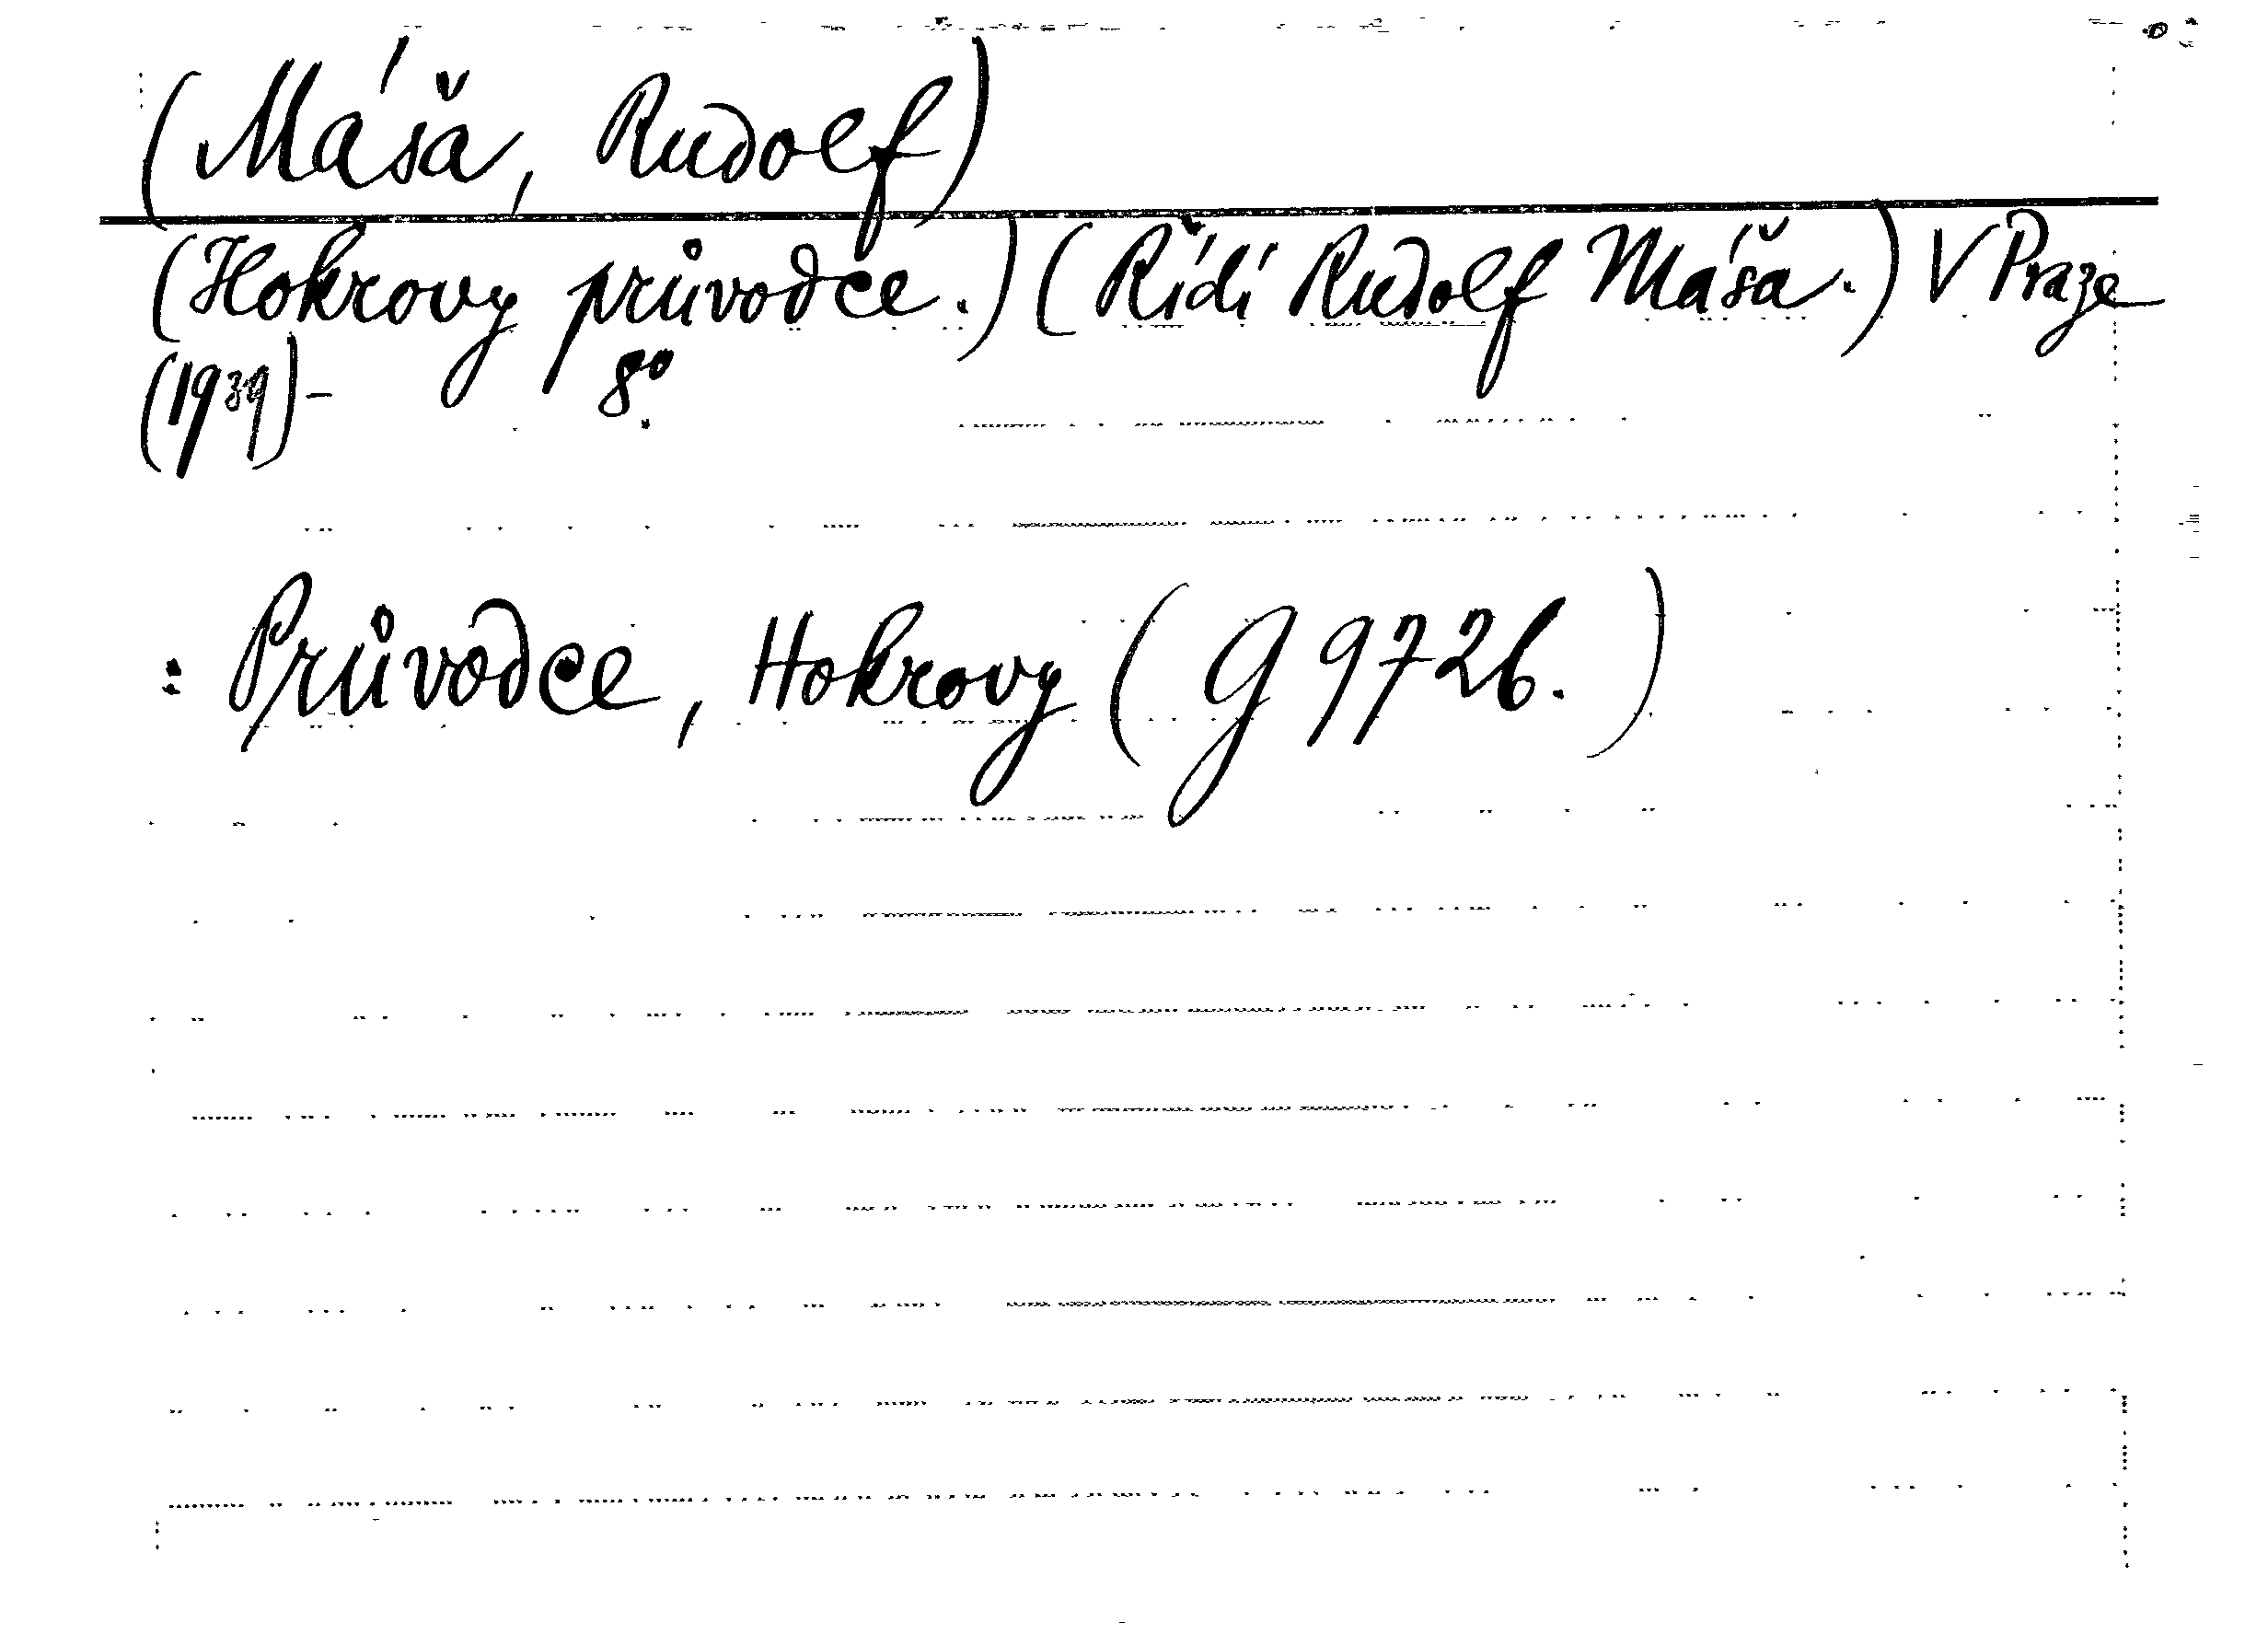 (Máša, Rudolf)
(Hokrovy průvodce.) (Řídí Rudolf Máša.) V Praze
(1939)- 8°.
: Průvodce, Hokrovy (G 9726.)